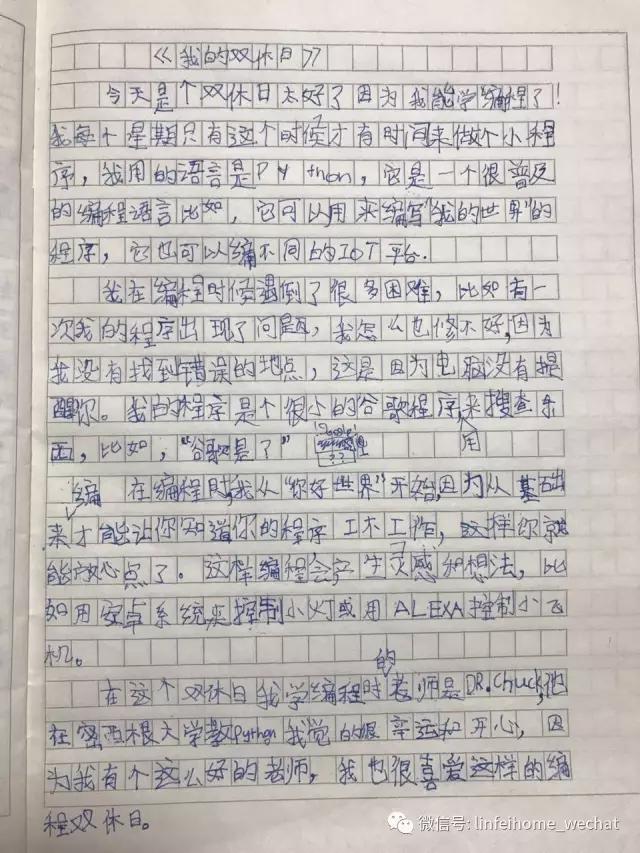 《我的双休日》
今天是个双休日太好了因为我能学编程了!
我每个星期只有这个时候才有时间来做个小程
序，我用的语言是Python，它是一个很普及
的编程语言比如，它可以用来编写"我的世界"的
程序，它也可以编不同的IOT平台.
我在编程时候遇到了很多困难，比如有一
次我的程序出现了问题，我怎么也修不好,因为
我没有找到错误的地点，这是因为电脑没有提
醒你。我的程序是个很小的谷歌程序用来搜查东
西，比如，"谷歌是了" Google
??
在编程时,我从"你好世界"开始,因为从基础
编来才能让你知道你的程序工不工作，这样你就
能放心点了．这样编程会产生灵感和想法，比
如用安卓系统来控制小灯或用ALEXA控制小飞
机。
在这个双休日我学编程时的老师是DR.Chuck,他
在密西根大学教python我觉的很幸运和开心，因
为我有个这么好的老师，我也很喜爱这样的编
程双休日。
微信号: linfeihome_wechat